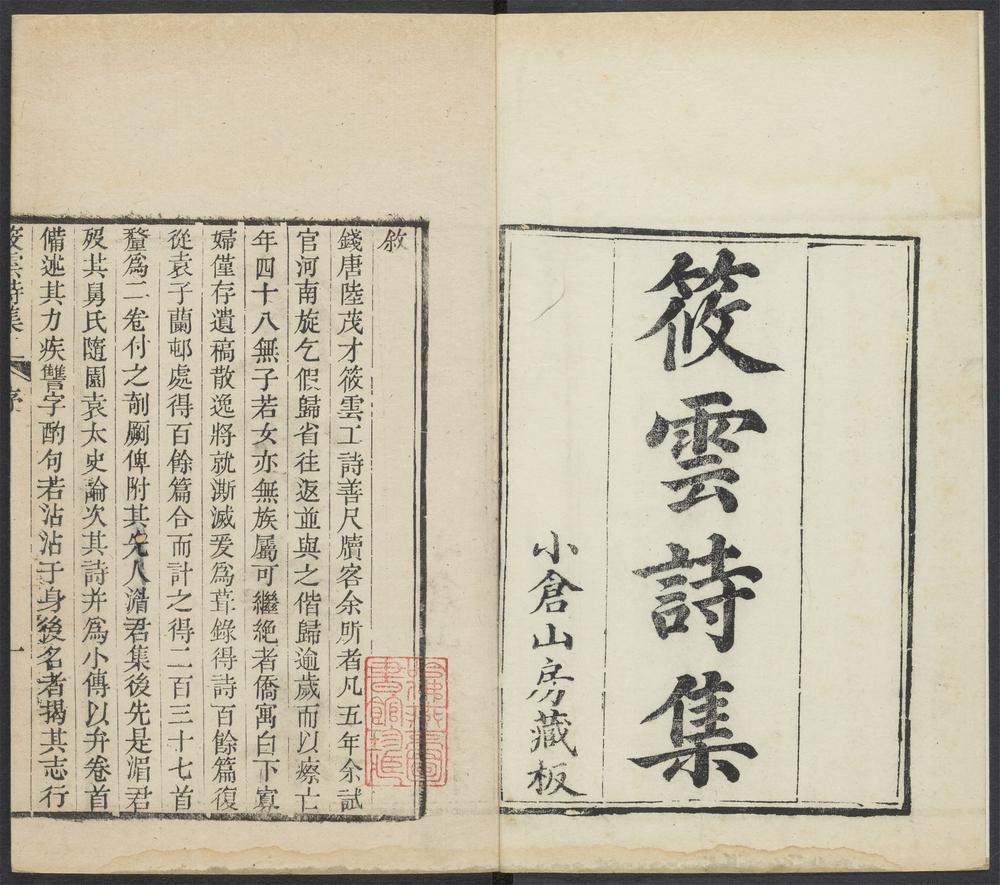 筱雲詩集
小倉山房藏板
敘
錢唐陸茂才筱雲工詩善尺牘客余所者凡五年余試
官河南旋乞假歸省往返並與之偕歸逾歲而以瘵亡
年四十八無子若女亦無族屬可繼絶者僑寓白下寡
婦僅存遺稿散逸將就澌滅爰爲葺錄得詩百餘篇復
從袁子蘭邨處得百餘篇合而計之得二百三十七首
釐爲二卷付之剞劂俾附其先人湄君集後先是湄君
歿其舅氏隨園袁太史論次其詩并爲小傳以弁卷首
備述其力疾讐字酌句若沾沾于身後名者揭其志行
筱雲詩集
序
一